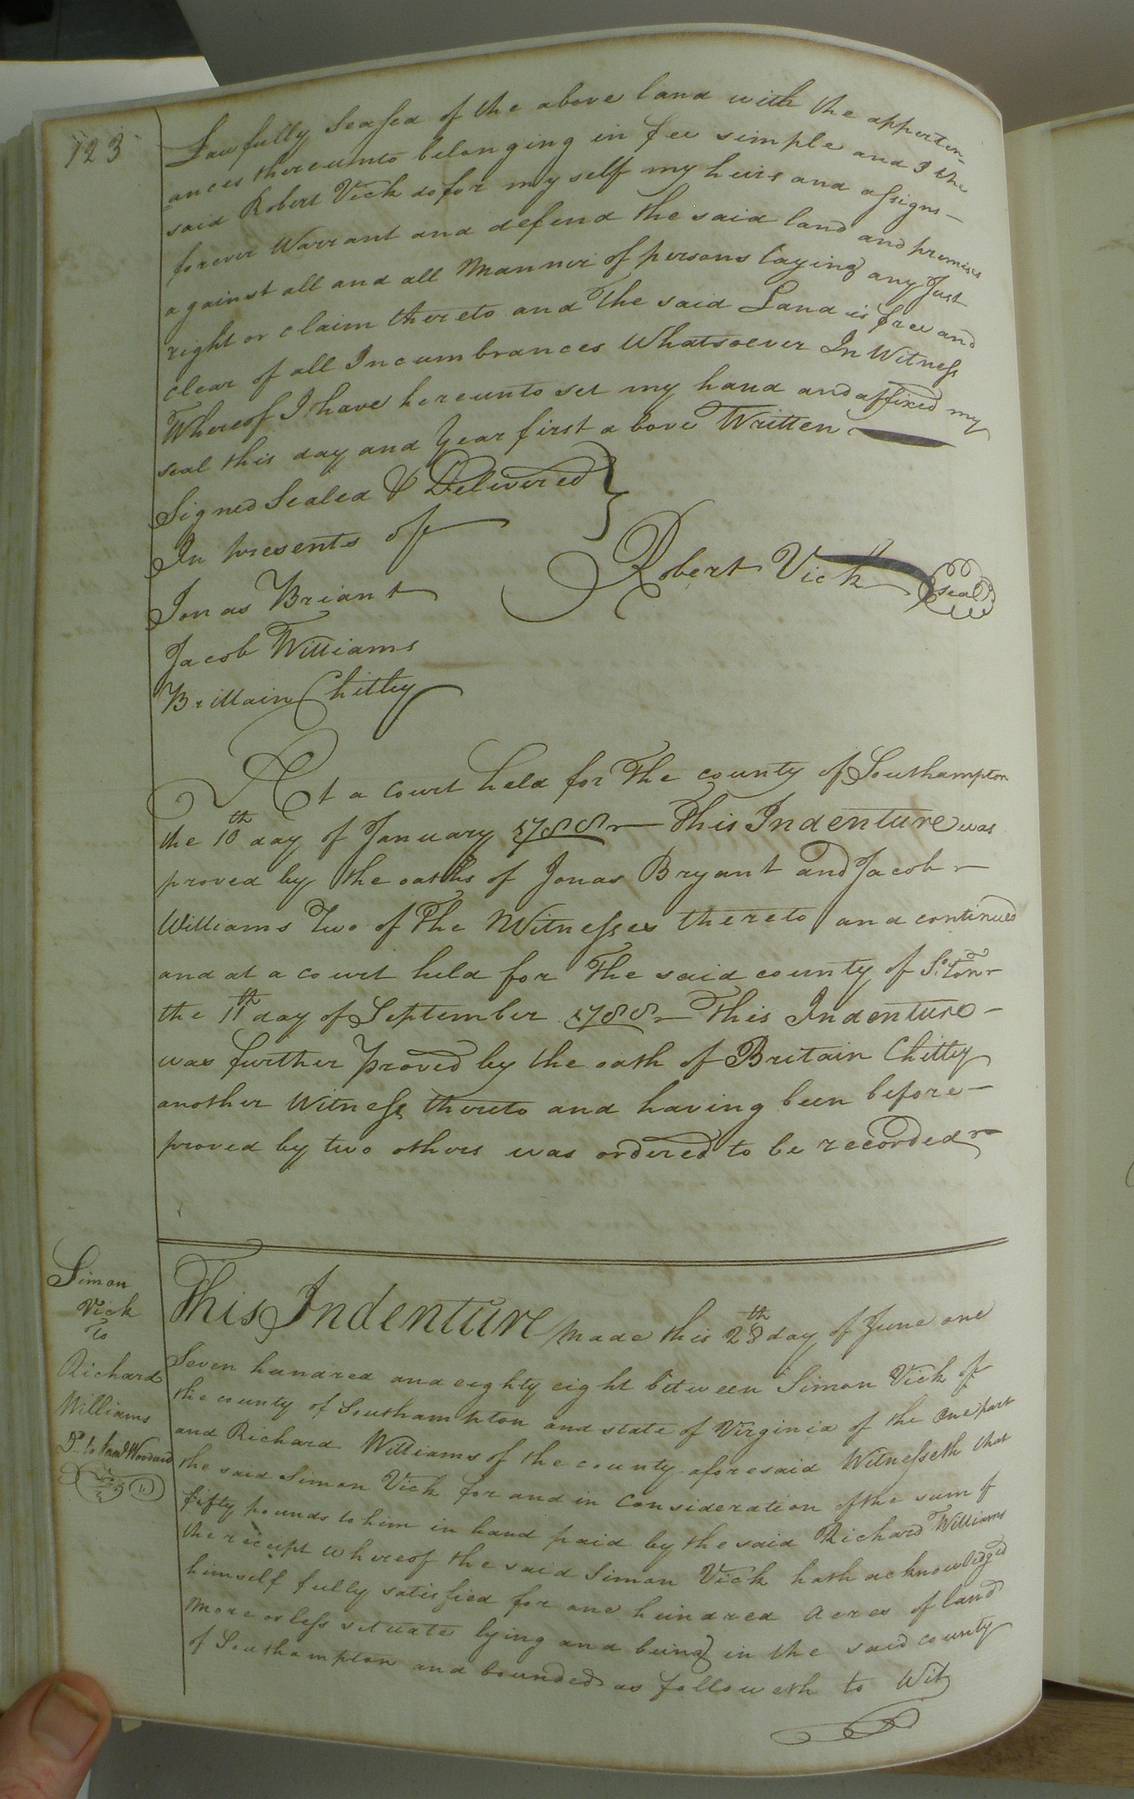 123
Lawfully Seased of the above land with the apperten-
ances thereunto belonging in fee simple and I the
said Robert Vick do for my self my heirs and assigns -
forever Warrant and defend the said land and premises
against all and all Manner of persons laying any Just
right or claim thereto and The said Land is free and
clear of all Incumbrances Whatsoever In Witness
Whereof I have hereunto set my hand and affixed my
seal this day and Year first above Written
Signed Sealed & Delivered }
In presents off
Robert Vick seal
Jonas Briant
Jacob Williams
Brittain Chittey
At a court held for The county of Southampton
the 10th day of January 1788 This Indenture was
proved by the oaths of Jonas Bryant and Jacob
Williams Two of The Witnesses thereto and continued
and at a court held for The said county of So.ton
the 11th day of September 1788 This Indenture
was further proved by the oath of Britain Chittey
another Witness thereto and having been before
proved by two others was ordered to be recorded
Simon
Vick
To
Richard
Williams
This Indenture Made this 28th day of June one
Seven hundred and eighty eight between Simon Vick of
the county of Southampton and state of Virginia of the one part
and Richard Williams of the county aforesaid Witnesseth that
the said Simon Vick for and in Consideration of the sum of
fifty pounds to him in hand paid by the said Richard Williams
the receipt whereof the said Simon Vick hath acknowledged
himself fully satisfied for one hundred Acres of land
More or less situate lying and being in the said county
of Southampton and bounded as followeth to Wit